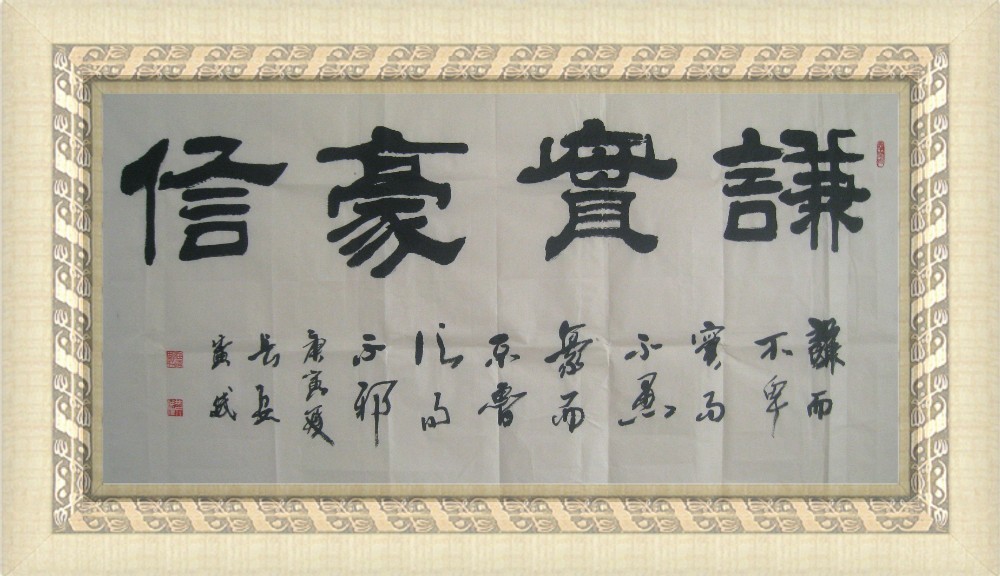 謙實豪信
謙而
不卑
實而
不愚
豪而
不魯
信而
不邪
庚寅夏